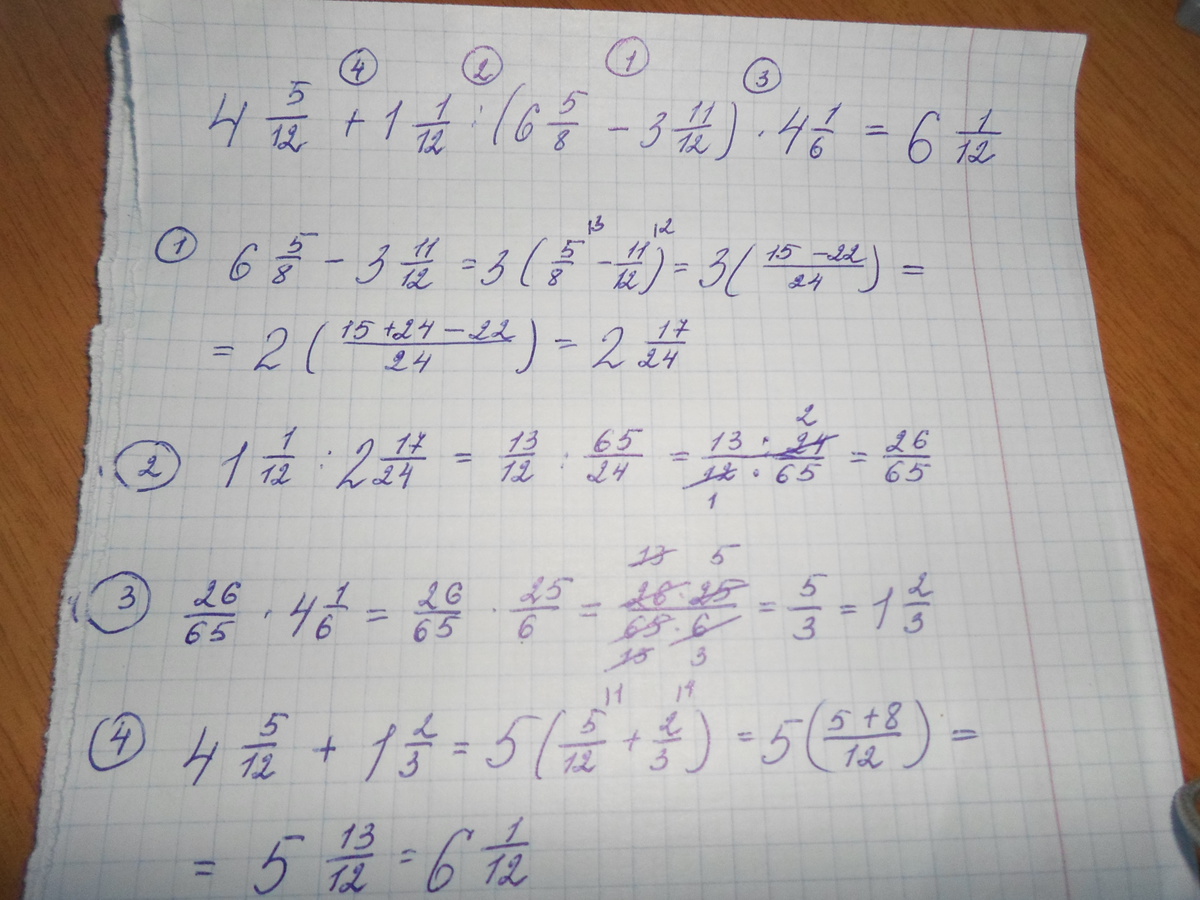 ④ ② ① ③
4 5/12 + 1 1/12 : (6 5/8 - 3 11/12) · 4 1/6 = 6 1/12
① 6 5/8 - 3 11/12 = 3 (5/8 |3 - 11/12 |2) = 3 ((15-22)/24) =
= 2 ((15+24-22)/24) = 2 17/24
② 1 1/12 : 2 17/24 = 13/12 : 65/24 = (13 · 24 2)/(12 1 · 65) = 26/65
③ 26/65 · 4 1/6 = 26/65 · 25/6 = (26 13 · 25 5)/(65 13 · 6 3) = 5/3 = 1 2/3
④ 4 5/12 + 1 2/3 = 5 (5/12 |1 + 2/3 |4) = 5 ((5+8)/12) =
= 5 13/12 = 6 1/12